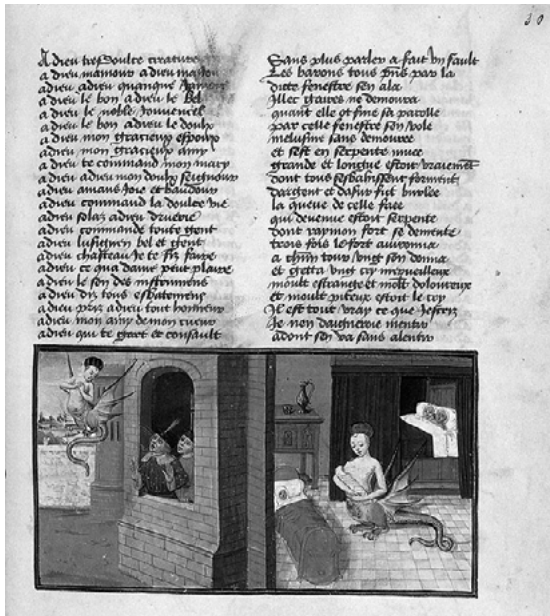 30
A dieu tresdoulce creature
a dieu mamour a dieu ma
a dieu adieu quanque
a dieu le bon a dieu le bel
a dieu le noble Jouuencel
a dieu le bon adieu le doulx
a dieu mon gracieux espoux
a dieu mon gracieux amy
a dieu te command mon mary
a dieu adieu mon doulx seignour
a dieu amans Joie et baudour
a dieu command la doulce vie
a dieu solaz adieu druerie
a dieu commande toute gent
a dieu lusignen bel et gent
a dieu chasteau Je te fiz faire
a dieu ce qua dame peut plaire
a dieu le son des instrumens
a dieu diz tous esbatemens
a dieu priz adieu tout honneur
a dieu mon amy de mon cueur
a dieu qui te gart et consault
Sans plus parler a fait vn sault
Les barons tous pns par la
ditte fenestre sen ala
Illec gaires ne demoura
quant elle ot fine sa parolle
par celle fenestre sen vole
melusine sans demouree
et sest en serpente muee
grande et longue estoit vraiement
dont tous sesbahissent forment
dargent et dasur fut burelee
la queue de celle faee
qui deuenue estoit serpente
dont raymon fort se demente
trois fois le fort auironna
a chun tour vng son donna
et getta vng cry merueilleux
moult estrange et molt doloureux
et moult piteux estoit le cry
Il est tout vray ce que Jescry
Je nen daigneroie mentir
adont sen va sans alentir